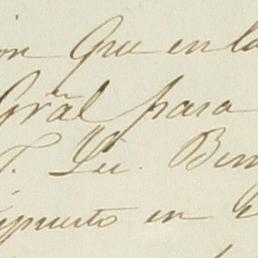 ion que en la
Gral para
T. Lic. Ben
puesto en